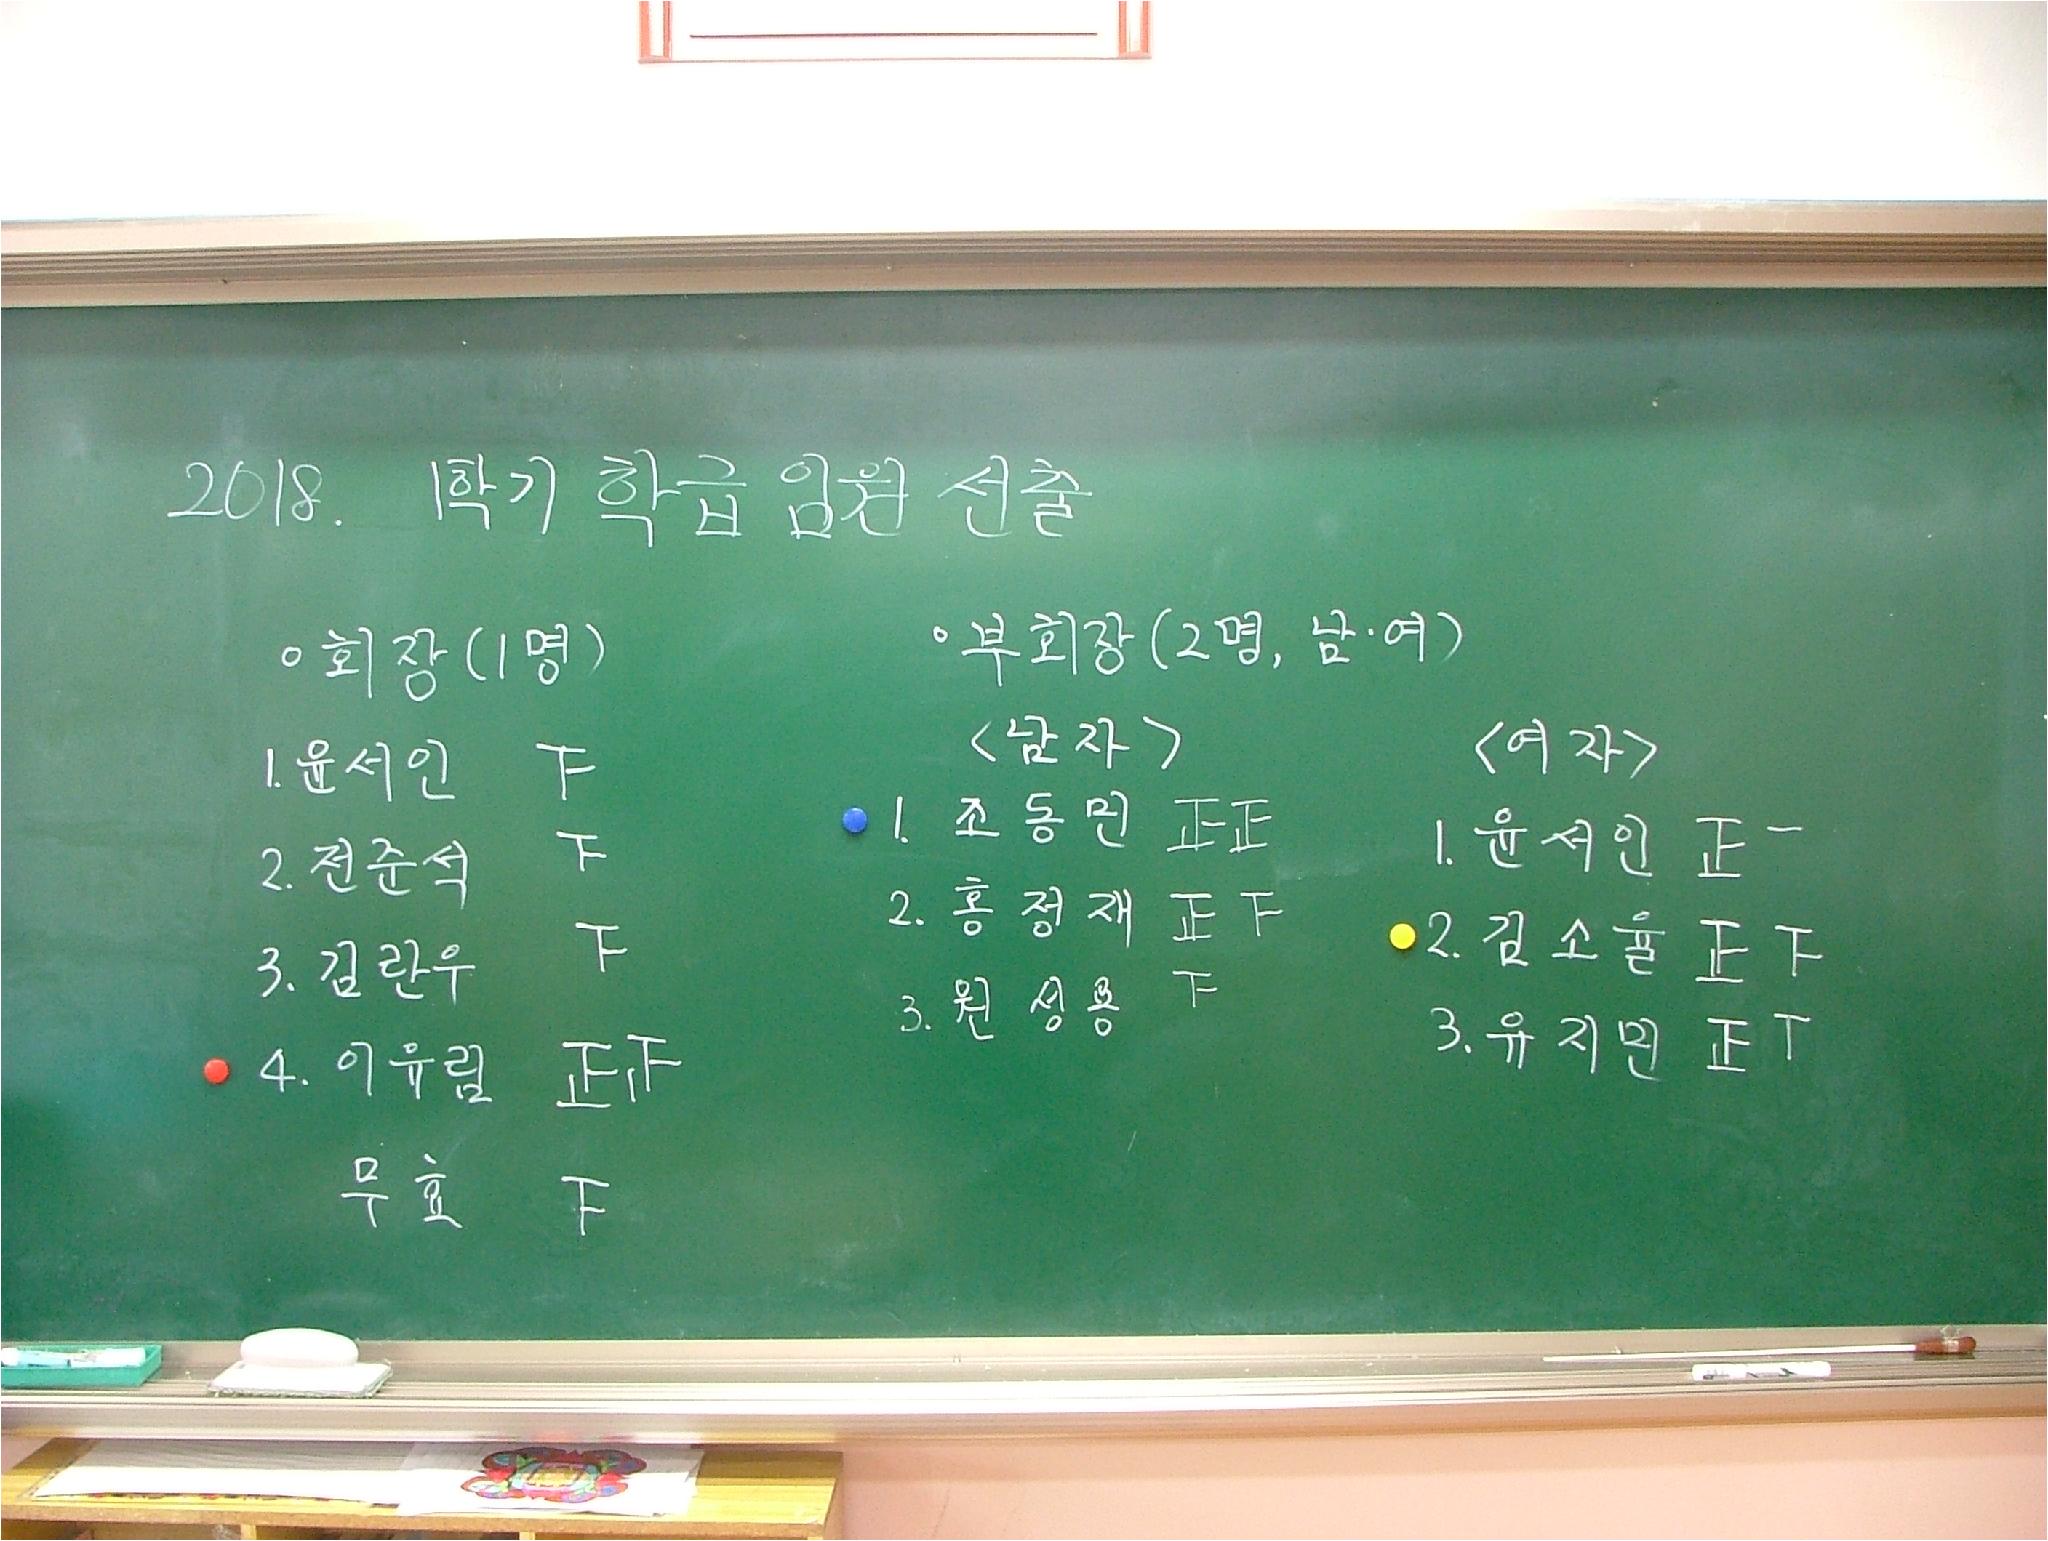 2018. 1학기 학급 임원 선출
◦ 회장 (1명)
1. 윤서인 下
2. 전준석 下
3. 김란우 下
4. 이유림 正正
무효 下
◦ 부회장 (2명, 남·여)
<남자>
1. 조동민 正正
2. 홍정재 正下
3. 원성용 下
<여자>
1. 윤서인 正一
2. 김소율 正下
3. 유지민 正丅